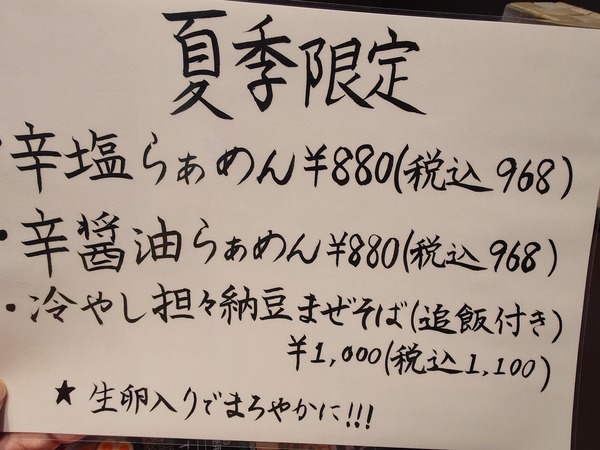 夏季限定
・辛塩らぁめん ¥880(税込968)
・辛醤油らぁめん ¥880(税込968)
・冷やし担々納豆まぜそば(追飯付き)
¥1,000(税込1,100)
★ 生卵入りでまろやかに!!!